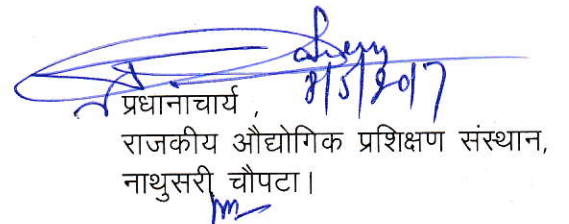 8/5/2017
प्रधानाचार्य ,
राजकीय औद्योगिक प्रशिक्षण संस्थान,
नाथुसरी चौपटा।